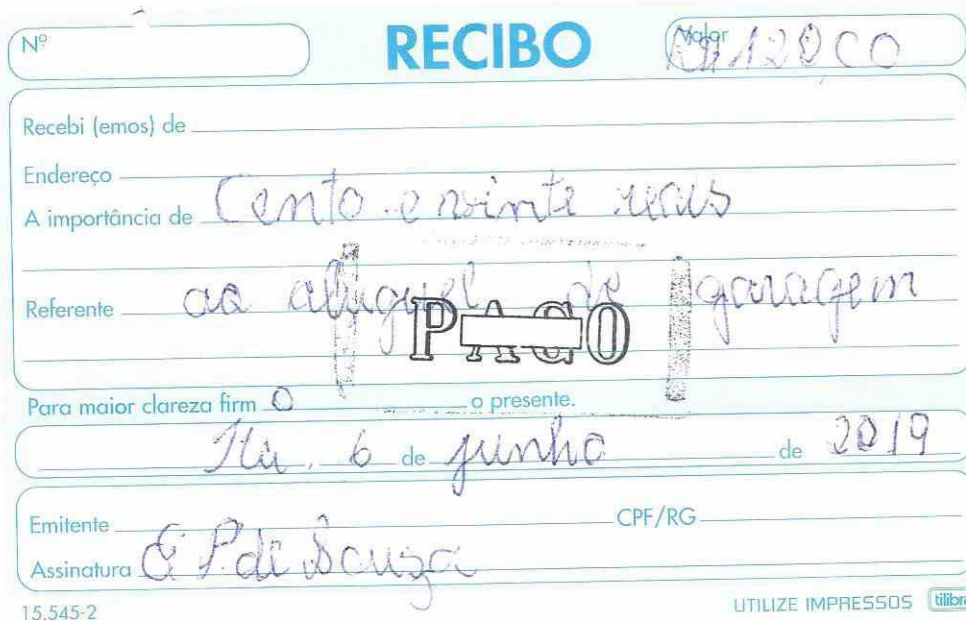 Nº RECIBO Valor R$ 120,00
Recebi (emos) de
Endereço
A importância de Cento e vinte reais
Referente ao aluguel de garagem
PAGO
Para maior clareza firm O o presente.
Itu, 6 de junho de 2019
Emitente CPF/RG
Assinatura E P. de Souza
15.545-2 UTILIZE IMPRESSOS tilibra